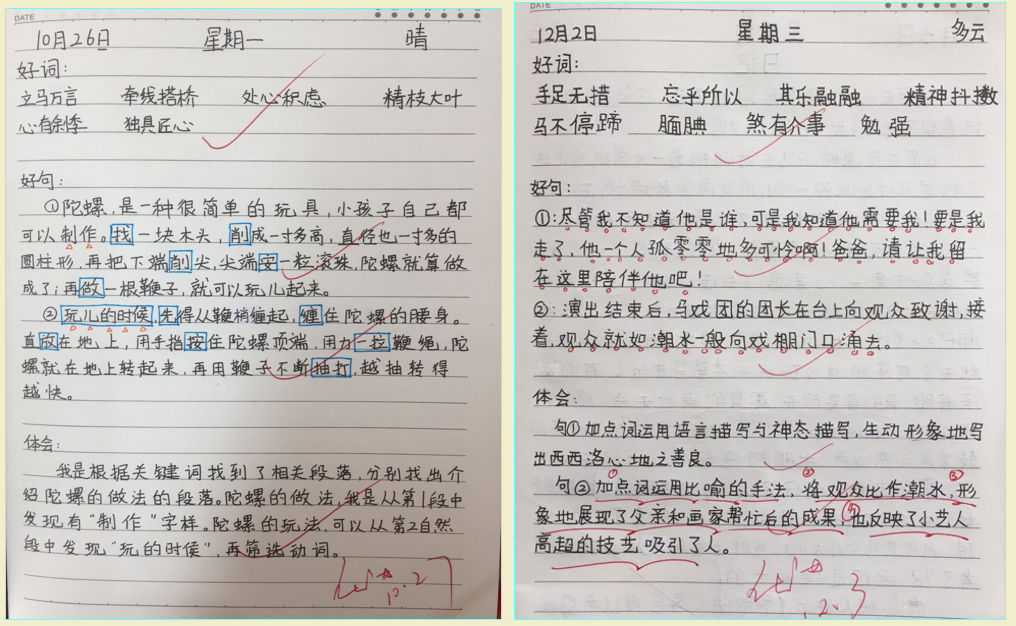 DATE
10月26日 星期一 晴
好词:
立马万言 牵线搭桥 处心积虑 精枝大叶
心有余悸 独具匠心
好句:
①陀螺,是一种很简单的玩具,小孩子自己都
可以制作。找一块木头,削成一寸多高,直径也一寸多的
圆柱形,再把下端削尖,尖端安一粒滚珠,陀螺就算做
成了;再做一根鞭子,就可以玩儿起来。
②玩儿的时候,先得从鞭梢缠起,缠住陀螺的腰身。
直放在地上,用手指按住陀螺顶端,用力一拉鞭绳,陀
螺就在地上转起来,再用鞭子不断抽打,越抽转得
越快。
体会:
我是根据关键词找到了相关段落,分别找出介
绍陀螺的做法的段落。陀螺的做法,我是从第1段中
发现有“制作”字样。陀螺的玩法,可以从第2自然
段中发现“玩的时候”,再筛选动词。
10.27
DATE
12月2日 星期三 多云
好词:
手足无措 忘乎所以 其乐融融 精神抖擞
马不停蹄 腼腆 煞有介事 勉强
好句:
①:尽管我不知道他是谁,可是我知道他需要我!要是我
走了,他一个人孤零零地多可怜啊!爸爸,请让我留
在这里陪伴他吧!
②:演出结束后,马戏团的团长在台上向观众致谢,接
着,观众就如潮水一般向戏棚门口涌去。
体会:
句①加点词运用语言描写与神态描写,生动形象地写
出西西洛心地之善良。
句②加点词运用比喻的手法,将观众比作潮水,形
象地展现了父亲和画家帮忙后的成果,也反映了小艺人
高超的技艺,吸引了人。
① ② ③ ④
12.3